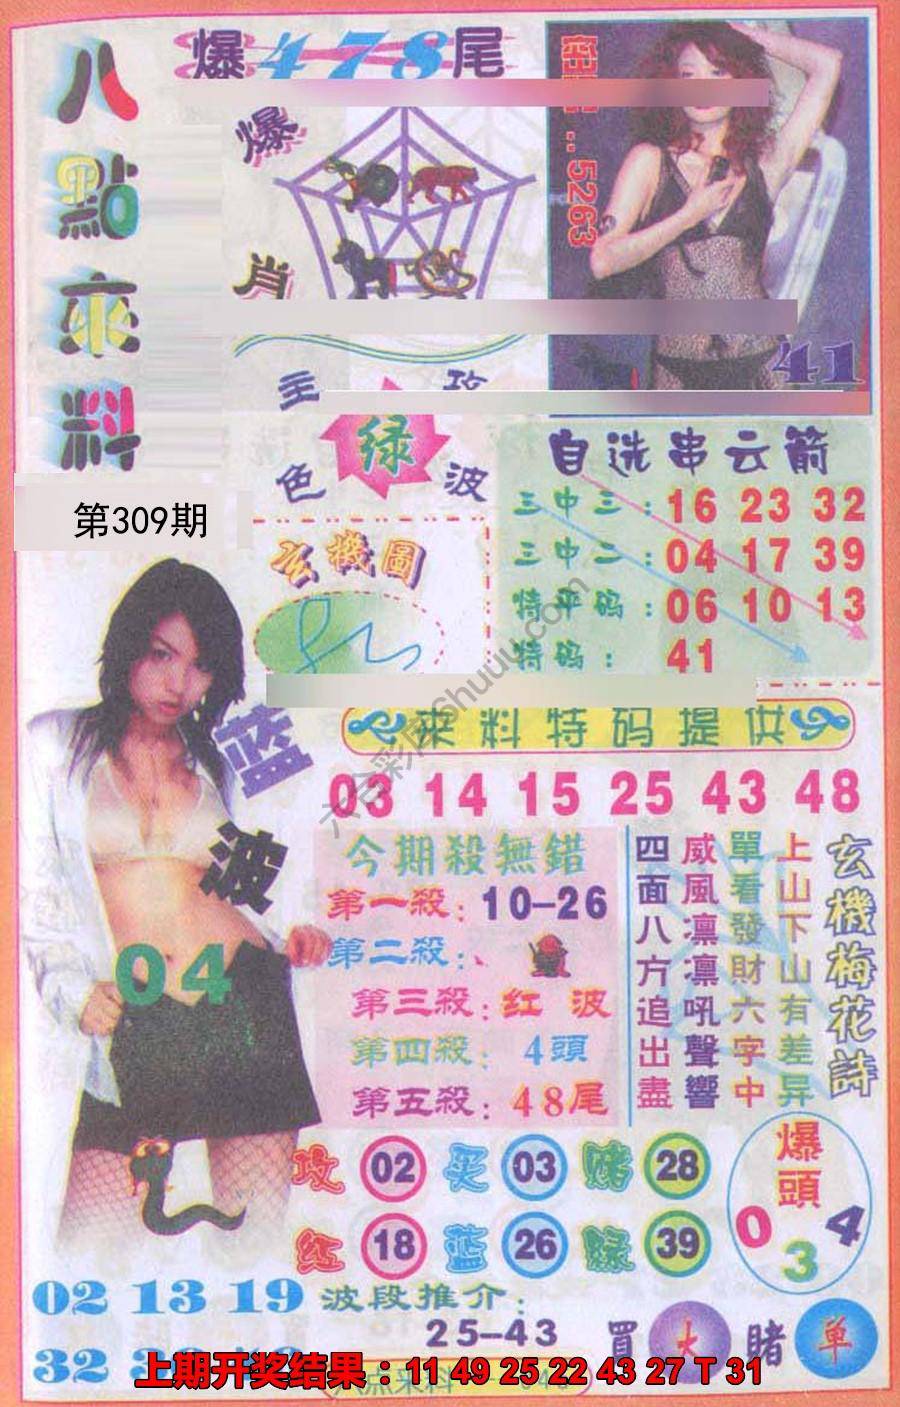 八點來料
爆478尾
爆肖
主攻
色波
绿
红唱:5263
41
第309期
自选串云箭
三中三:16 23 32
三中二:04 17 39
特平码:06 10 13
特码:41
玄機圖
来料特码提供
03 14 15 25 43 48
蓝波
04
今期殺無錯
第一殺:10-26
第二殺:
第三殺:红波
第四殺:4頭
第五殺:48尾
玄機梅花詩
上山下山有差异
單看發財六字中
威風凛凛吼聲響
四面八方追出盡
攻 02 买 03 赌 28
红 18 蓝 26 绿 39
爆頭
0 3 4
02 13 19
32
波段推介:
25-43
買大賭单
上期开奖结果:11 49 25 22 43 27 T 31
六合彩库6huuu.com